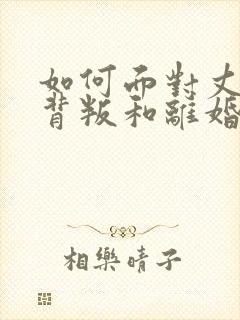 如何面對丈
背叛和離婚
相樂晴子